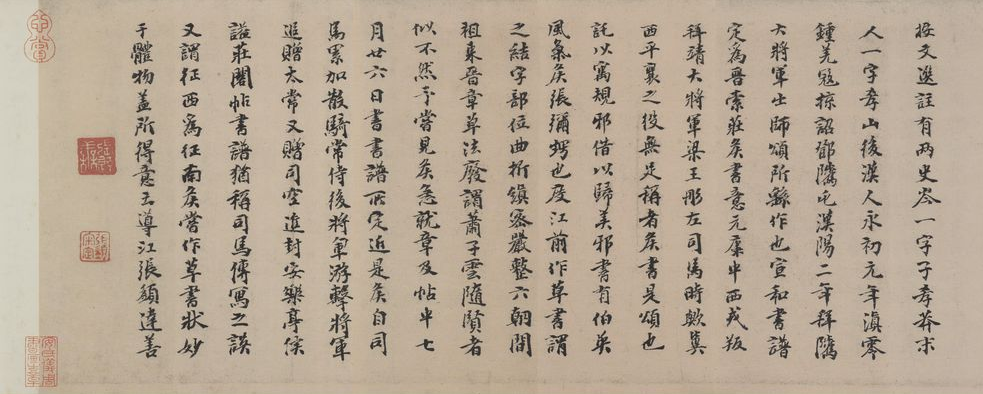 按文選註有兩史岑一字子孝莽末
人一字孝山後漢人永初元年滇零
鍾羌寇掠詔鄧騭屯漢陽二年拜騭
大將軍出師頌所繇作也宣和書譜
定為晉索莊矦書意元康中西戎叛
拜靖大將軍梁王肜左司馬時歟冀
西平襄之役無足稱者矦書是頌也
託以寓規邪借以歸美邪書有伯英
風氣矦張彌甥也度江前作草書謂
之結字部位曲折縝密嚴整六朝間
祖東晉章草法廢謂蕭子雲隨賢者
似不然予嘗見矦急就章及帖中七
月廿六日書書譜所定近是矦自司
馬累加散騎常侍後將軍游擊將軍
追贈太常又贈司空進封安樂亭侯
謚莊閣帖書譜猶稱司馬傳寫之誤
又謂征西為征南矦嘗作草書狀妙
于體物蓋所得意云導江張達善